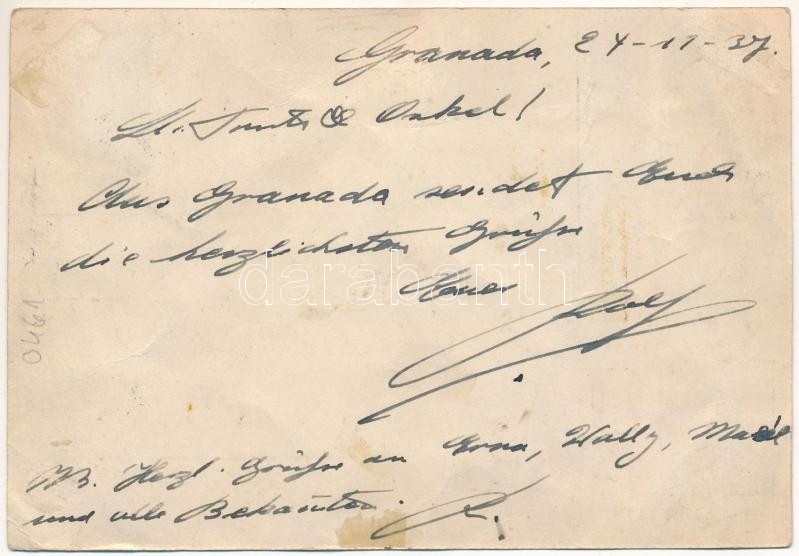 Granada, 24-11-37.
Lb. Tante & Onkel!
Aus Granada sendet Euch
die herzlichsten Grüße
Euer Rolf
NB. Herzl. Grüße an Erna, Wally,
und viele Bekannten. R.
0461
darabanth